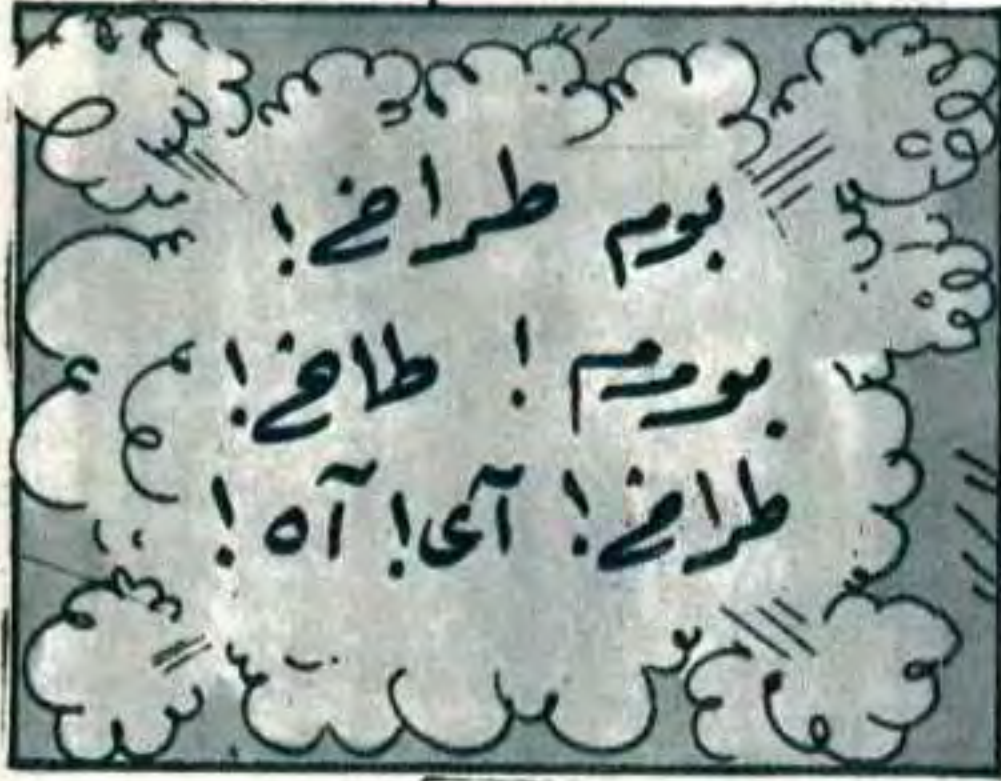 بوم طراخ!
بوررم! طاخ!
طراخ! آى! آه!